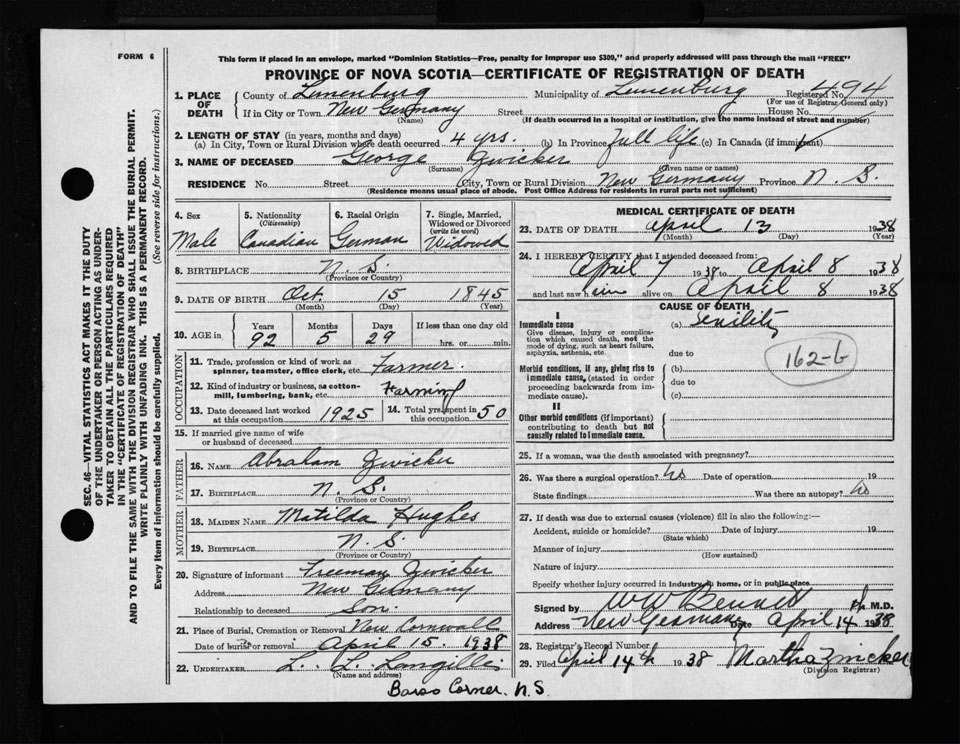 FORM 6
This form if placed in an envelope, marked "Dominion Statistics—Free, penalty for improper use $300," and properly addressed will pass through the mail "FREE"
PROVINCE OF NOVA SCOTIA—CERTIFICATE OF REGISTRATION OF DEATH
1. PLACE OF DEATH County of Lunenburg Municipality of Lunenburg Registered No. 494
(For use of Registrar-General only)
If in City or Town New Germany Street House No.
(Name) (If death occurred in a hospital or institution, give the name instead of street and number)
2. LENGTH OF STAY (in years, months and days)
(a) In City, Town or Rural Division where death occurred 4 yrs. (b) In Province full life (c) In Canada (if immigrant)
3. NAME OF DECEASED George Zwicker
(Surname) (Given name or names)
RESIDENCE No. Street City, Town or Rural Division New Germany Province N. S.
(Residence means usual place of abode. Post Office Address for residents in rural parts not sufficient)
4. Sex 5. Nationality (Citizenship) 6. Racial Origin 7. Single, Married, Widowed or Divorced (write the word)
Male Canadian German Widowed
8. BIRTHPLACE N. S.
(Province or Country)
9. DATE OF BIRTH Oct. 15 1845
(Month) (Day) (Year)
10. AGE IN Years Months Days If less than one day old
92 5 29 hrs. or min.
OCCUPATION
11. Trade, profession or kind of work as spinner, teamster, office clerk, etc. Farmer.
12. Kind of industry or business, as cotton-mill, lumbering, bank, etc. Farming
13. Date deceased last worked at this occupation 1925 14. Total yrs. spent in this occupation 50
15. If married give name of wife or husband of deceased
FATHER
16. NAME Abraham Zwicker
17. BIRTHPLACE N. S.
(Province or Country)
MOTHER
18. MAIDEN NAME Matilda Hughes
19. BIRTHPLACE N. S.
(Province or Country)
20. Signature of informant Freeman Zwicker
Address New Germany
Relationship to deceased Son.
21. Place of Burial, Cremation or Removal New Cornwall
Date of burial or removal April 15. 1938
22. UNDERTAKER L. L. Langille
(Name and address)
Barss Corner, N.S.
MEDICAL CERTIFICATE OF DEATH
23. DATE OF DEATH April 13 1938
(Month) (Day) (Year)
24. I HEREBY CERTIFY that I attended deceased from:
April 7 1938 to April 8 1938
and last saw him alive on April 8 1938
CAUSE OF DEATH
I
Immediate cause (a) senility
Give disease, injury or complication which caused death, not the mode of dying, such as heart failure, asphyxia, asthenia, etc.
due to
162-b
Morbid conditions, if any, giving rise to immediate cause, (stated in order proceeding backwards from immediate cause).
(b)
due to
(c)
II
Other morbid conditions (if important) contributing to death but not causally related to immediate cause.
25. If a woman, was the death associated with pregnancy?
26. Was there a surgical operation? No Date of operation 19
State findings Was there an autopsy? No
27. If death was due to external causes (violence) fill in also the following:—
Accident, suicide or homicide? Date of injury 19
(State which)
Manner of injury
(How sustained)
Nature of injury
Specify whether injury occurred in industry, in home, or in public place
Signed by W W Bennett M.D.
Address New Germany Date April 14 1938
28. Registrar's Record Number
29. Filed April 14th 1938 Martha Zwicker
(Division Registrar)
SEC. 46—VITAL STATISTICS ACT MAKES IT THE DUTY
OF THE UNDERTAKER OR PERSON ACTING AS UNDERTAKER TO OBTAIN ALL THE PARTICULARS REQUIRED
IN THE "CERTIFICATE OF REGISTRATION OF DEATH"
AND TO FILE THE SAME WITH THE DIVISION REGISTRAR WHO SHALL ISSUE THE BURIAL PERMIT.
WRITE PLAINLY WITH UNFADING INK. THIS IS A PERMANENT RECORD.
Every item of information should be carefully supplied. (See reverse side for instructions.)